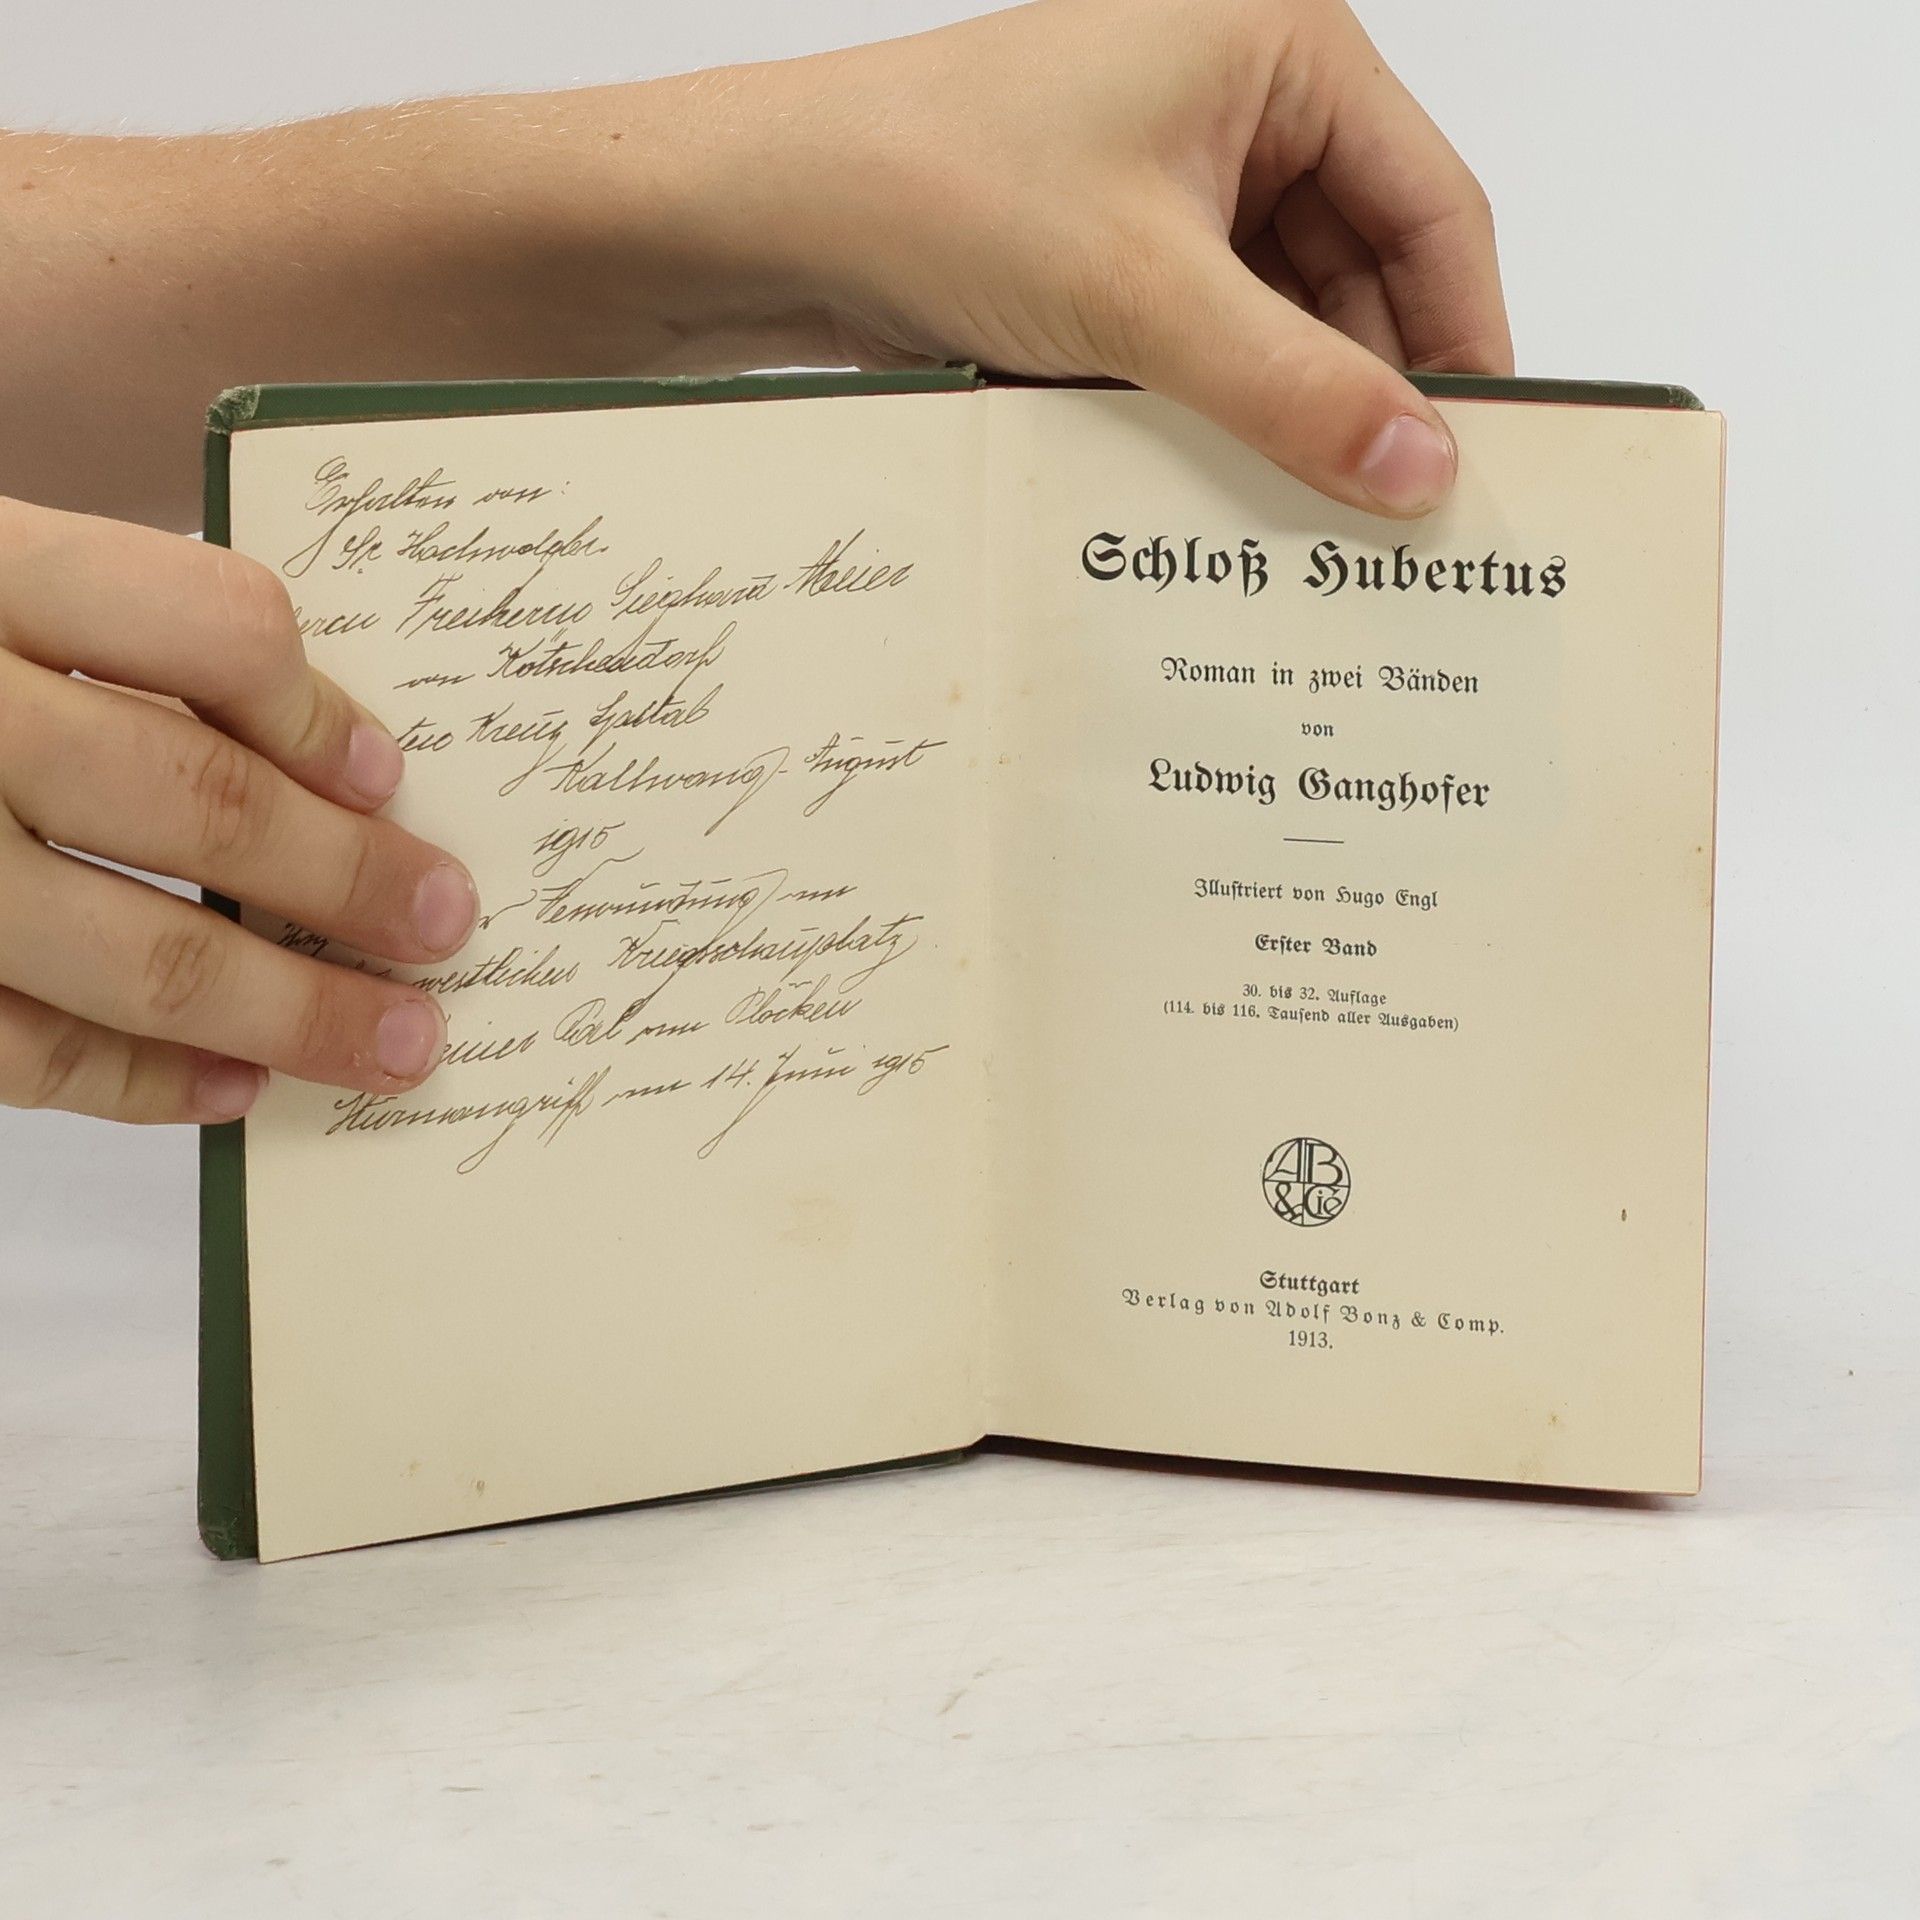 Erhalten von:
Sr. Hochwolgeb.
Freiherrn Sieghard Meier
von Kötschendorf
Kreuz Spital
Kallwang - August
1915
Verwundung am
westlichen Kriegsschauplatz
Pal am Plöcken
Sturmangriff am 14. Juni 1915
Schloß Hubertus
Roman in zwei Bänden
von
Ludwig Ganghofer
Illustriert von Hugo Engl
Erster Band
30. bis 32. Auflage
(114. bis 116. Tausend aller Ausgaben)
AB
&Cie
Stuttgart
Verlag von Adolf Bonz & Comp.
1913.